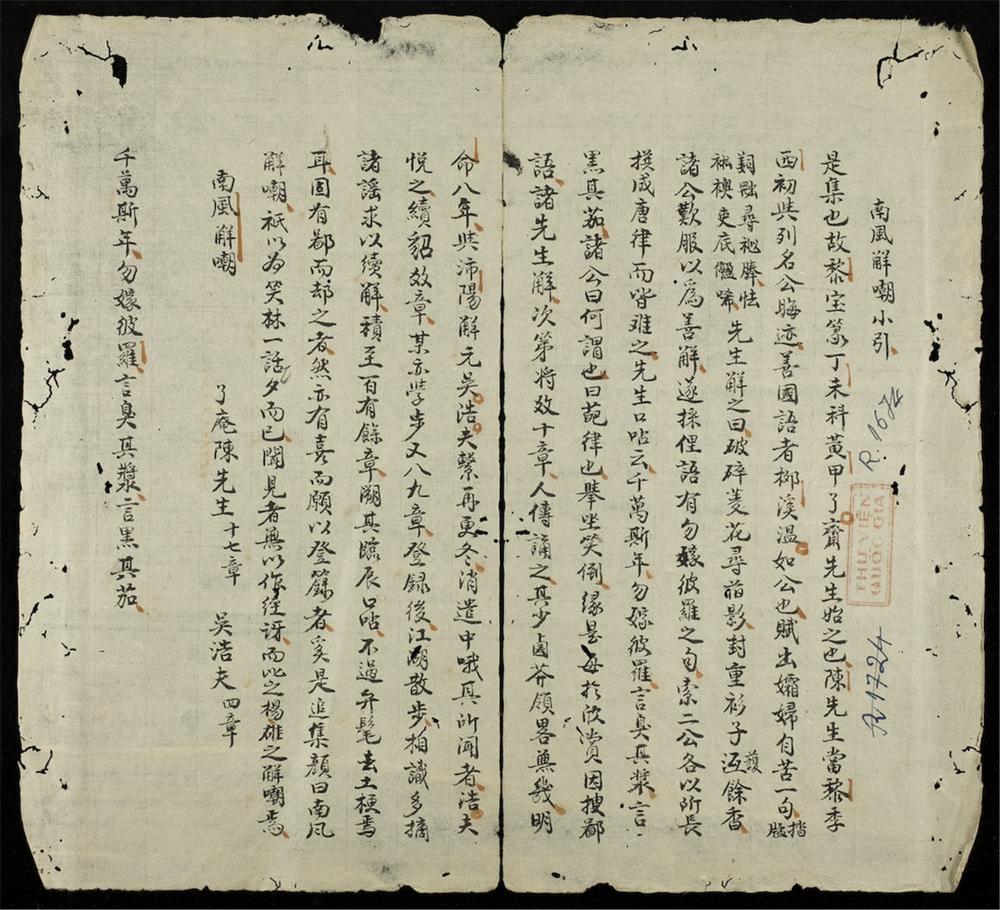 南風解嘲小引
是集也故黎宝篆丁未科黃甲了齋先生始之也陳先生當黎季
西初與列名公晦迹善國語者柳溪溫如公也賦出孀婦自苦一句
先生解之曰破碎菱花尋舊影封重衫子護餘香
諸公歎服以為善解遂採俚語有勿嫁彼羅之句索二公各以所長
撰成唐律而皆难之先生口呫云千萬斯年勿嫁彼羅言臭其漿言
黑其茄諸公曰何謂也曰葩律也舉坐笑倒緣是每於欣賞因搜鄙
語諸先生解次第將效十章人傳誦之其少鹵莽領畧無幾明
命八年與沛陽解元吳浩夫繫再更冬消遣中哦其所聞者浩夫
悅之續貂效章某亦學步又八九章登録後江湖散步相識多摘
諸謡求以續解積至百有餘章溯其臨辰口呫不過弁髦去土梗焉
耳固有鄙而却之者然亦有喜而願以登籙者奚是追集顏曰南风
解嘲祇以為笑林一話夕而已聞見者無以作經訝而比之楊雄之解嘲焉
南風解嘲
了庵陳先生 十七章 吳浩夫 四章
千萬斯年勿嫁彼羅言臭其漿言黑其茄
R.1674
THƯ VIỆN
QUỐC GIA
R1724